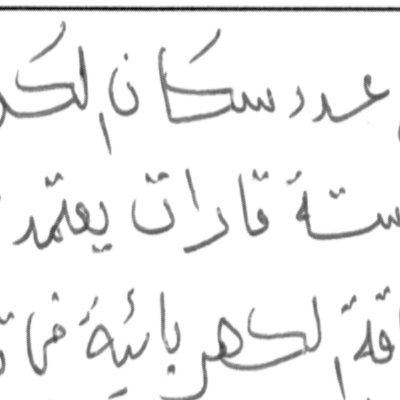 عدد سكان الكر
ستة قارات يعتمد
اقة الكهربائية في